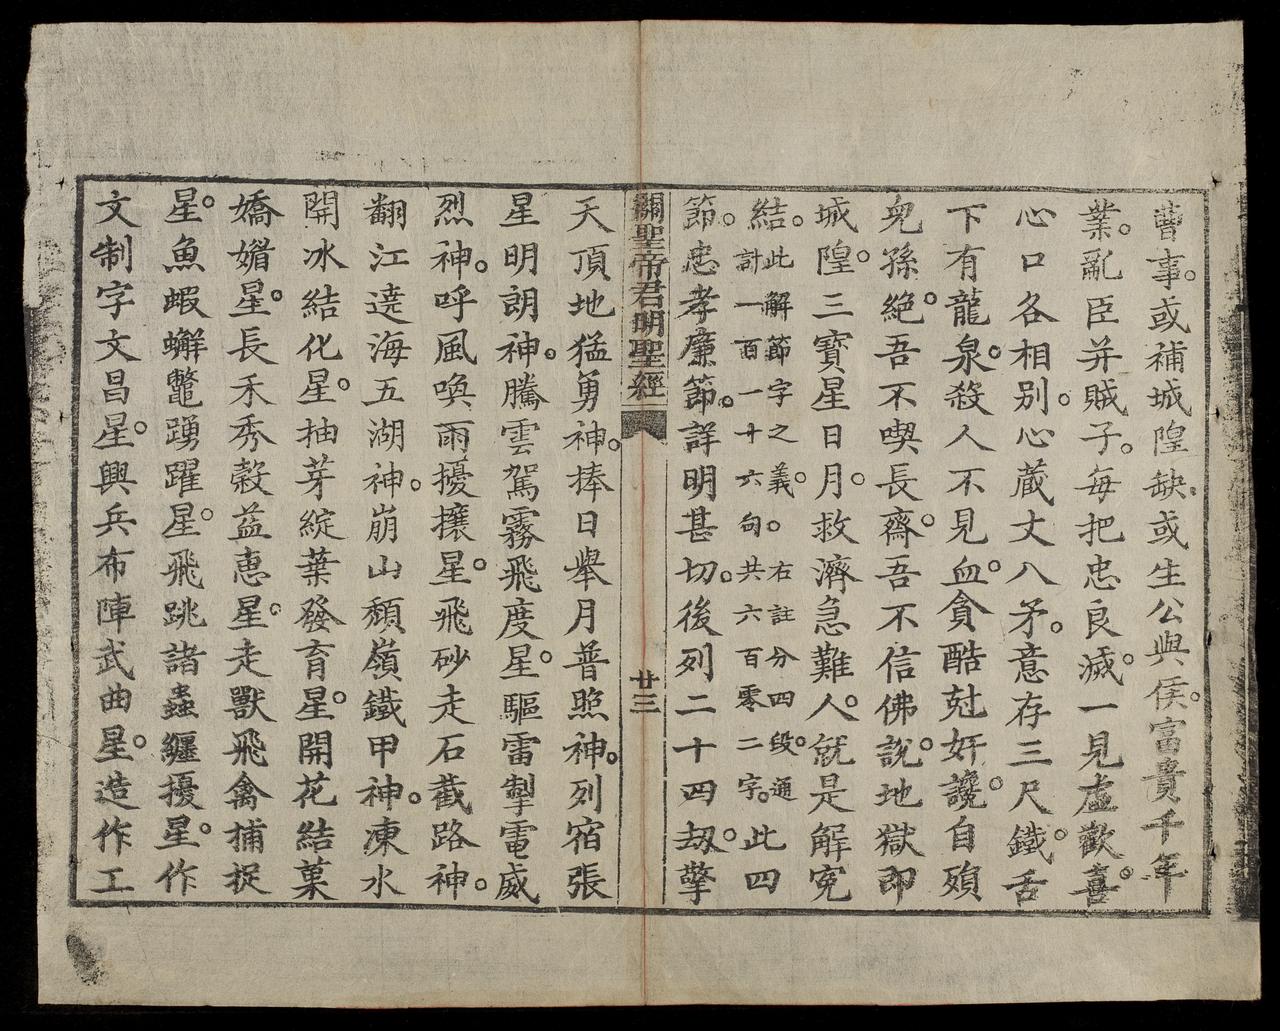 曹事。或補城隍缺。或生公與侯。富貴千年
業。亂臣并賊子。每把忠良滅。一見虛歡喜。
心口各相別。心蔵丈八矛。意存三尺鐵。舌
下有龍泉。殺人不見血。貪酷尅奸讒。自殞
兒孫絕。吾不喫長齋。吾不信佛說。地獄即
城隍。三寶星日月。救濟急難人。就是解寃
結。此解節字之義。。右註分四段。通
計一百一十六句共六百零二字。此四
節。忠孝廉節。詳明甚切。後列二十四刼。擎
關聖帝君明聖經
廿三
天頂地猛勇神。捧日舉月普照神。列宿張
星明朗神。騰雲駕霧飛度星。驅雷掣電威
烈神。呼風喚雨擾攘星。飛砂走石截路神。
翻江遶海五湖神。崩山頽嶺鐵甲神。凍水
開冰結化星。抽芽綻葉發育星。開花結菓
嬌媚星。長禾秀穀益惠星。走獸飛禽捕捉
星。魚蝦蠏鼈踴躍星。飛跳諸蟲纒擾星。作
文制字文昌星。興兵布陣武曲星。造作工